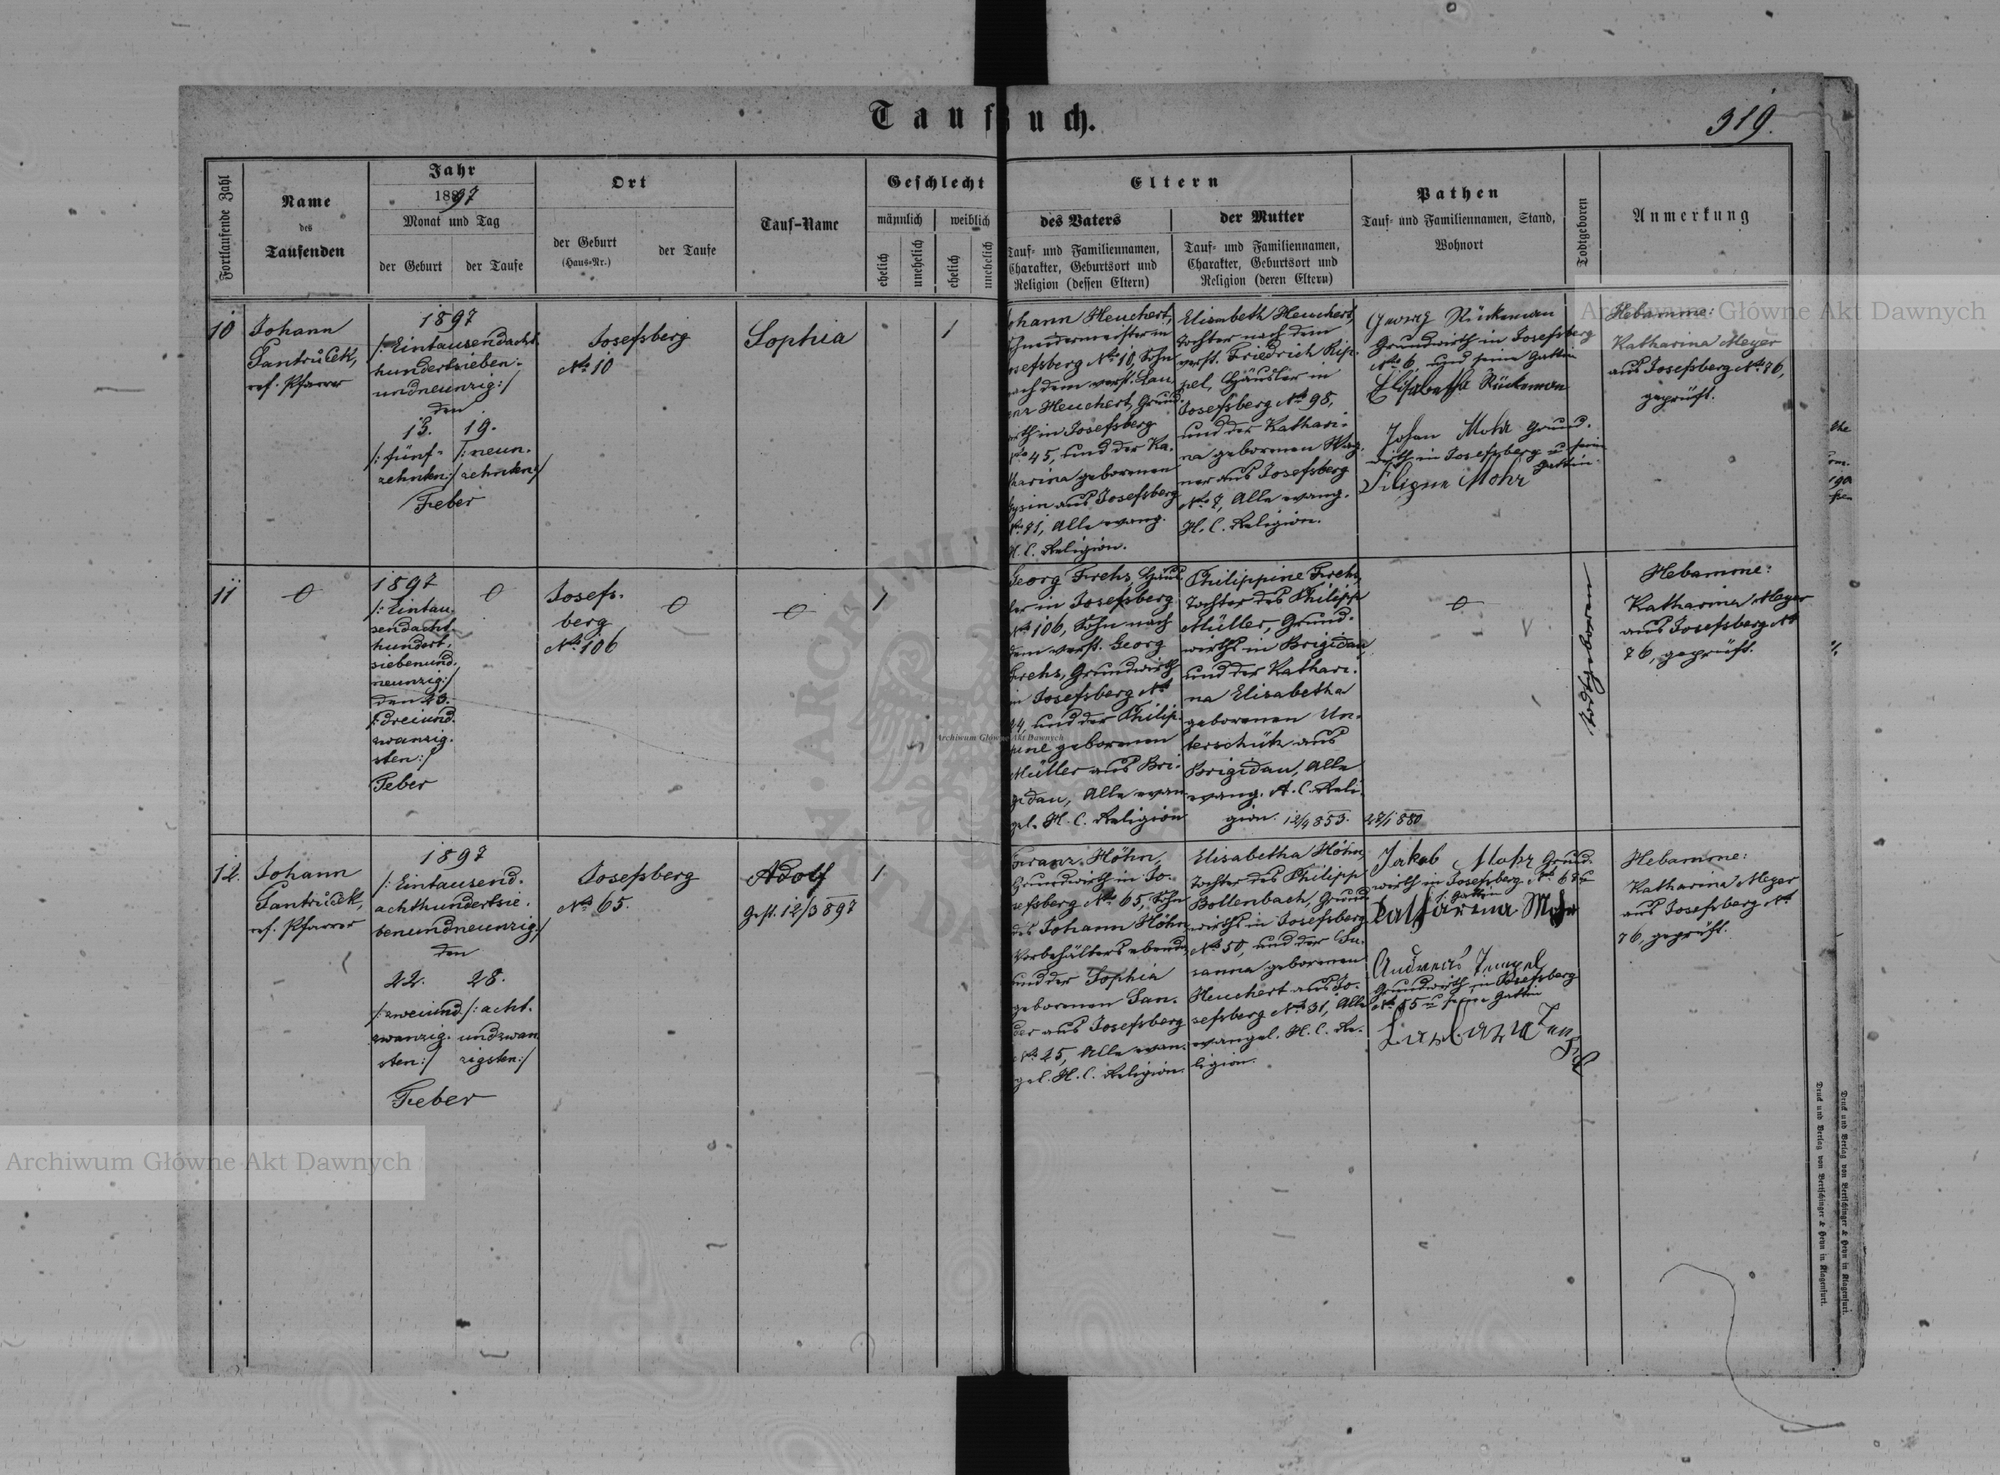 Taufbuch.
319.
Fortlaufende Zahl
Name
des
Taufenden
Jahr
1897
Monat und Tag
der Geburt
der Taufe
Ort
der Geburt
(Haus-Nr.)
der Taufe
Tauf-Name
Geschlecht
männlich
weiblich
ehelich
unehelich
ehelich
unehelich
Eltern
des Vaters
Tauf- und Familiennamen,
Charakter, Geburtsort und
Religion (dessen Eltern)
der Mutter
Tauf- und Familiennamen,
Charakter, Geburtsort und
Religion (deren Eltern)
Pathen
Tauf- und Familiennamen, Stand,
Wohnort
Todtgeboren
Anmerkung
10
Johann
ref. Pfarrer
1897
/: Eintausendacht
hundertsieben-
undneunzig :/
den
19.
/: fünf-
zehnten :/
/: neun-
zehnten :/
Feber
Josefsberg
No 10
Sophia
1
Johann Heuchert,
Schneidermeister in
Josefsberg No 10, Sohn
nach dem verst. Lau
renz Heuchert, Grund
wirth in Josefsberg
No 45, und der Ka
tharina geborenen
aus Josefsberg
No 81, Alle evang.
H. C. Religion.
Elisabeth Heuchert,
Tochter nach dem
verst. Friedrich Rip-
pel, Häusler in
Josefsberg No 98,
und der Kathari-
na geborenen Wag
ner aus Josefsberg
No 7, Alle evang.
H. C. Religion.
Georg Rückeman
Grundwirth in Josefsberg
No 6, und seine Gattin
Elisabetha Rückeman
Johan Mohr Grund-
wirth in Josefsberg u sein
Gattin
Mohr
Hebamme:
Katharina Meyer
aus Josefsberg No 76,
geprüft.
11
1897
/: Eintau-
sendacht-
hundert,
siebenund-
neunzig :/
den 23.
/: dreiund-
zwanzig-
sten :/
Feber
Josefs-
berg
No 106
1
Georg Frehs, Häus
ler in Josefsberg
No 106, Sohn nach
dem verst. Georg
Frehs, Grundwirth
in Josefsberg No
44, und der Philip-
pine geborenen
Müller aus Bri-
gidau, Alle evan
gel. H. C. Religion
Philippine Frehs,
Tochter des Philipp
Müller, Grund-
wirths in Brigidau,
und der Kathari-
na Elisabetha
geborenen Un-
terschütz aus
Brigidau, Alle
evang. A. C. Reli-
gion. 12/9 853.
28/1 880
todtgeboren
Hebamme:
Katharina Meyer
aus Josefsberg No
76, geprüft.
12.
Johann
ref. Pfarrer
1897
/: Eintausend-
achthundertsie-
benundneunzig :/
den
22.
28.
/: zweiund
zwanzig-
sten :/
/: acht-
undzwan
zigsten :/
Feber
Josefsberg
No 65.
Adolf
Gest. 12/3 897
1
Franz Höhn,
Grundwirth in Jo-
sefsberg No 65, Sohn
des Johann Höhn
Vorbehälters ebenda,
und der Sophia
geborenen San-
der aus Josefsberg
No 25, Alle evan-
gel. H. C. Religion.
Elisabetha Höhn,
Tochter des Philipp
Bollenbach, Grund
wirths in Josefsberg
No 50, und der Su-
sanna geborenen
Heuchert aus Jo-
sefsberg No 31, Alle
evangel. H. C. Re-
ligion.
Jakob Mohr Grund-
wirth in Josefsberg No 68 u
s. Gattin
Katharina Mohr
Andreas Tempel
Grundwirth in Josefsberg
No 55 u seine Gattin
Hebamme:
Katharina Meyer
aus Josefsberg No
76, geprüft.
Druck und Verlag von Bertschinger & Heyn in Klagenfurt.
Druck und Verlag von Bertschinger & Heyn in Klagenfurt.
Archiwum Główne Akt Dawnych
Archiwum Główne Akt Dawnych
Archiwum Główne Akt Dawnych